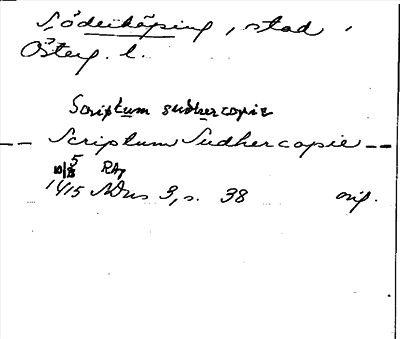 Söderköping, stad,
Österg. l.
Scriptum sudhercopie
-- Scriptum Sudhercopie --
10/5 RAp
1415 NDns 3, s. 38 orig.